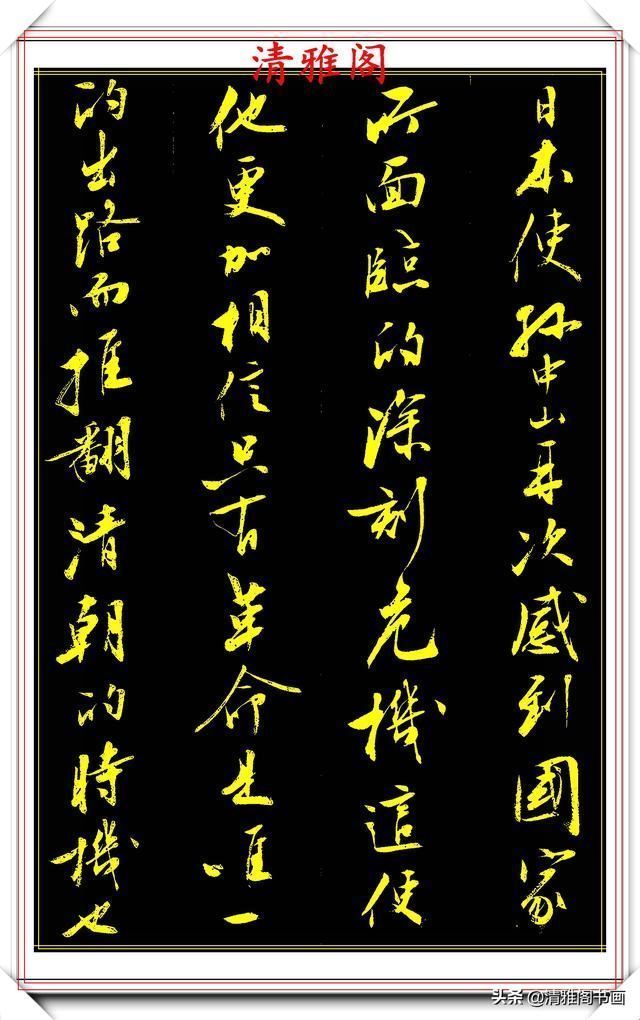 清雅阁
日本使孙中山再次感到國家
所面臨的深刻危機這使
他更加相信只有革命是唯一
的出路而推翻清朝的時機也
头条@清雅阁书画